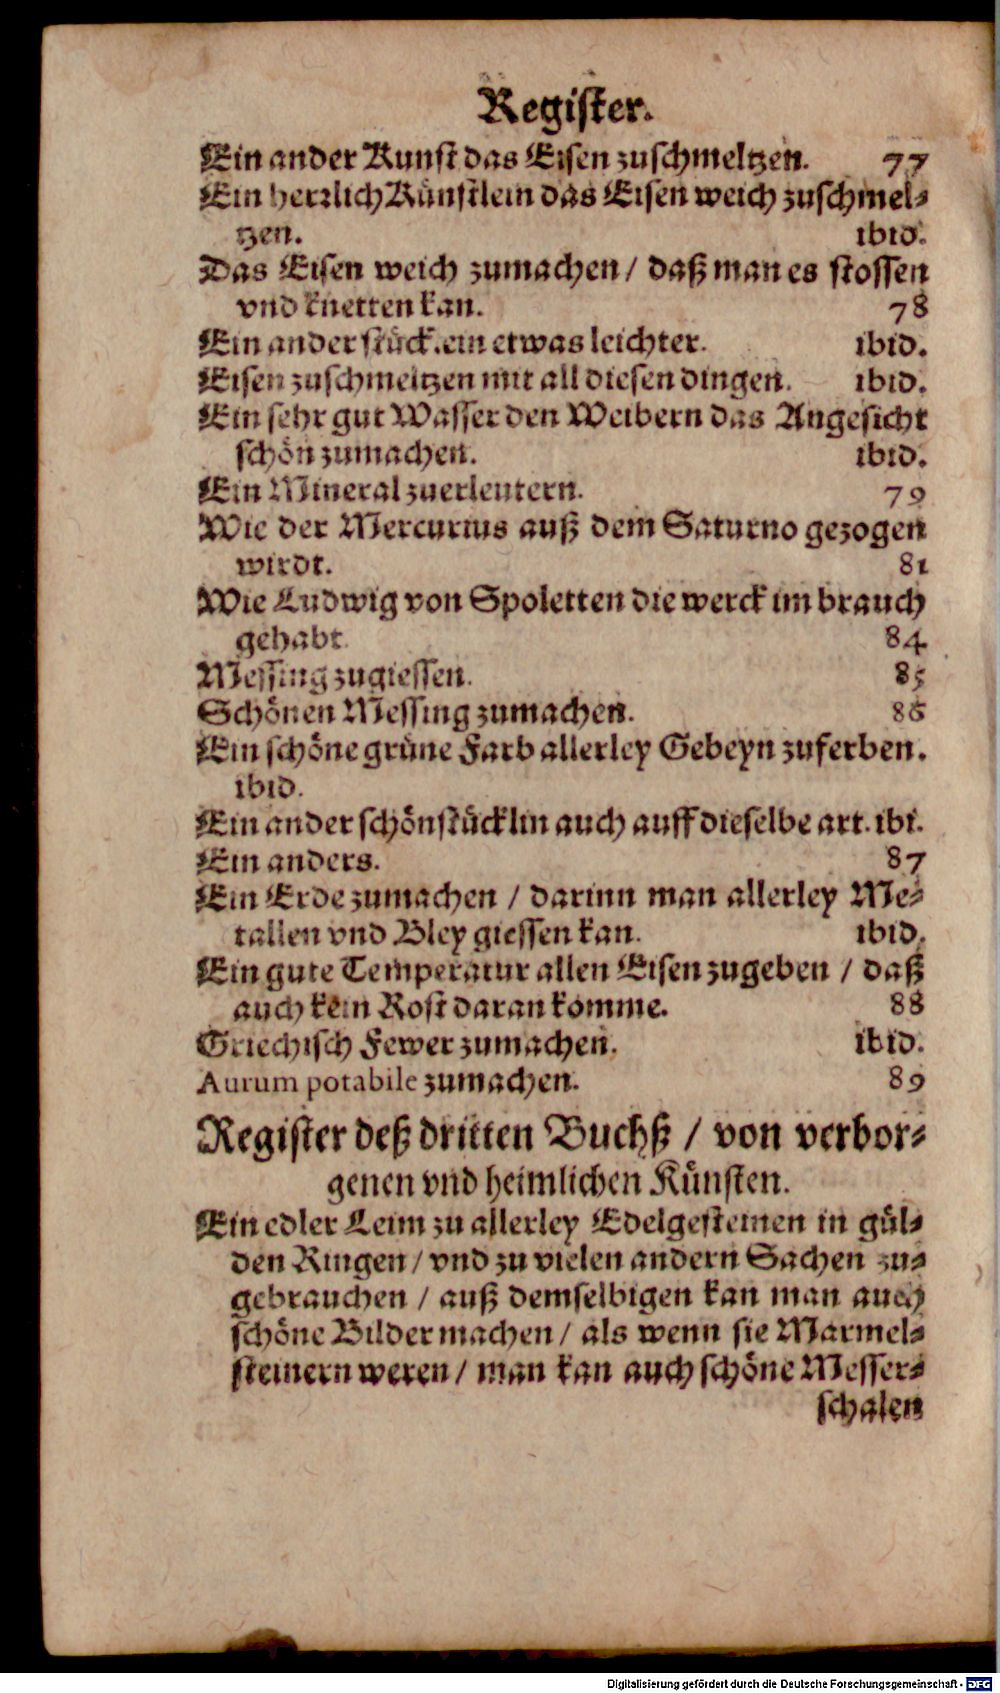 Register.
Ein ander Kunst das Eisen zuschmeltzen. 77
Ein herrlich Künstlein das Eisen weich zuschmel-
tzen. ibid.
Das Eisen weich zumachen / daß man es stossen
vnd knetten kan. 78
Ein ander stück.ein etwas leichter. ibid.
Eisen zuschmeltzen mit all diesen dingen. ibid.
Ein sehr gut Wasser den Weibern das Angesicht
schön zumachen. ibid.
Ein Mineral zuerleutern. 79
Wie der Mercurius auß dem Saturno gezogen
wirdt. 81
Wie Ludwig von Spoletten die werck im brauch
gehabt. 84
Messing zugiessen. 85
Schönen Messing zumachen. 86
Ein schöne grüne Farb allerley Gebeyn zuferben.
ibid.
Ein ander schön stücklin auch auff dieselbe art. ibi.
Ein anders. 87
Ein Erde zumachen / darinn man allerley Me-
tallen vnd Bley giessen kan. ibid.
Ein gute Temperatur allen Eisen zugeben / daß
auch kein Rost daran komme. 88
Griechisch Fewer zumachen. ibid.
Aurum potabile zumachen. 89
Register deß dritten Buchß / von verbor-
genen vnd heimlichen Künsten.
Ein edler Leim zu allerley Edelgesteinen in gül-
den Ringen / vnd zu vielen andern Sachen zu-
gebrauchen / auß demselbigen kan man auch
schöne Bilder machen / als wenn sie Marmel-
steinern weren / man kan auch schöne Messer-
schalen
Digitalisierung gefördert durch die Deutsche Forschungsgemeinschaft - DFG